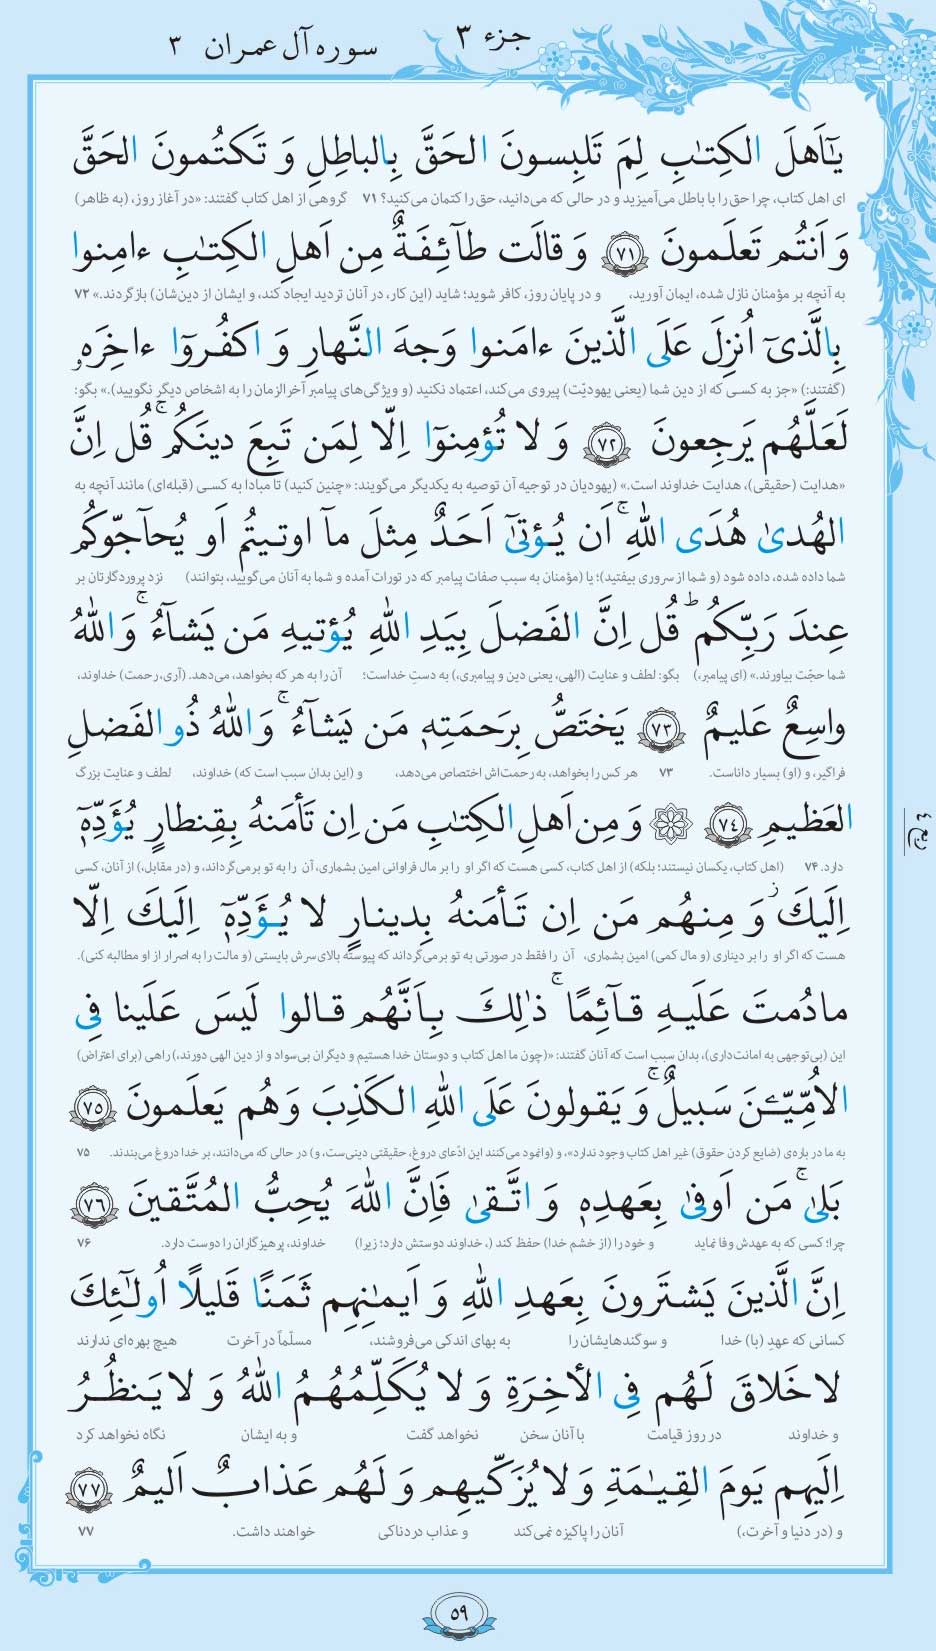 جزء ۳
سوره آل عمران ۳
يٰٓأَهلَ الكِتٰبِ لِمَ تَلبِسونَ الحَقَّ بِالباطِلِ وَ تَكتُمونَ الحَقَّ
ای اهل کتاب، چرا حق را با باطل می‌آمیزید و در حالی که می‌دانید، حق را کتمان می‌کنید؟ ۷۱ گروهی از اهل کتاب گفتند: «در آغاز روز، (به ظاهر)
وَ اَنتُم تَعلَمونَ ﴿۷۱﴾ وَ قالَت طآئِفَةٌ مِن اَهلِ الكِتٰبِ ءامِنوا
به آنچه بر مؤمنان نازل شده، ایمان آورید، و در پایان روز، کافر شوید؛ شاید (این کار، در آنان تردید ایجاد کند، و ایشان از دین‌شان) بازگردند.» ۷۲
بِالَّذىٓ اُنزِلَ عَلَى الَّذينَ ءامَنوا وَجهَ النَّهارِ وَ اكفُروٓا ءاخِرَهٗ
(گفتند:) «جز به کسی که از دین شما (یعنی یهودیّت) پیروی می‌کند، اعتماد نکنید (و ویژگی‌های پیامبر آخرالزمان را به اشخاص دیگر نگویید).» بگو:
لَعَلَّهُم يَرجِعونَ ﴿۷۲﴾ وَ لا تُؤمِنوٓا اِلّا لِمَن تَبِعَ دينَكُم ۚ قُل اِنَّ
«هدایت (حقیقی)، هدایت خداوند است.» (یهودیان در توجیه آن توصیه به یکدیگر می‌گویند: «چنین کنید) تا مبادا به کسی (قبله‌ای) مانند آنچه به
الهُدىٰ هُدَى اللّٰهِ ۚ اَن يُؤتىٰٓ اَحَدٌ مِثلَ مآ اوتيتُم اَو يُحآجّوكُم
شما داده شده، داده شود (و شما از سروری بیفتید)؛ یا (مؤمنان به سبب صفات پیامبر که در تورات آمده و شما به آنان می‌گویید، بتوانند) نزد پروردگارتان بر
عِندَ رَبِّكُم ۗ قُل اِنَّ الفَضلَ بِيَدِ اللّٰهِ يُؤتيهِ مَن يَشآءُ ۚ وَ اللّٰهُ
شما حجّت بیاورند.» (ای پیامبر،) بگو: لطف و عنایت (الهی، یعنی دین و پیامبری،) به دستِ خداست؛ آن را به هر که بخواهد، می‌دهد. (آری، رحمت) خداوند،
واسِعٌ عَليمٌ ﴿۷۳﴾ يَختَصُّ بِرَحمَتِهٖ مَن يَشآءُ ۚ وَ اللّٰهُ ذُو الفَضلِ
فراگیر، و (او) بسیار داناست. ۷۳ هر کس را بخواهد، به رحمت‌اش اختصاص می‌دهد، و (این بدان سبب است که) خداوند، لطف و عنایت بزرگ
العَظيمِ ﴿۷۴﴾ ۞ وَ مِن اَهلِ الكِتٰبِ مَن اِن تَأمَنهُ بِقِنطارٍ يُؤَدِّهٖٓ
دارد. ۷۴ (اهل کتاب، یکسان نیستند؛ بلکه) از اهل کتاب، کسی هست که اگر او را بر مال فراوانی امین بشماری، آن را به تو برمی‌گرداند، و (در مقابل،) از آنان، کسی
اِلَيكَ ز وَ مِنهُم مَن اِن تَأمَنهُ بِدينارٍ لا يُؤَدِّهٖٓ اِلَيكَ اِلّا
هست که اگر او را بر دیناری (و مال کمی) امین بشماری، آن را فقط در صورتی به تو برمی‌گرداند که پیوسته بالای سرش بایستی (و مالت را به اصرار از او مطالبه کنی).
مادُمتَ عَلَيهِ قآئِمًا ۚ ذٰلِكَ بِاَنَّهُم قالوا لَيسَ عَلَينا فِى
این (بی‌توجهی به امانت‌داری)، بدان سبب است که آنان گفتند: «(چون ما اهل کتاب و دوستان خدا هستیم و دیگران بی‌سواد و از دین الهی دورند،) راهی (برای اعتراض)
الاُمِّيّـۧنَ سَبيلٌ ۚ وَ يَقولونَ عَلَى اللّٰهِ الكَذِبَ وَ هُم يَعلَمونَ ﴿۷۵﴾
به ما در باره‌ی (ضایع کردن حقوق) غیر اهل کتاب وجود ندارد»، و (وانمود می‌کنند این ادّعای دروغ، حقیقتی دینی‌ست، و) در حالی که می‌دانند، بر خدا دروغ می‌بندند. ۷۵
بَلىٰ ۚ مَن اَوفىٰ بِعَهدِهٖ وَ اتَّقىٰ فَاِنَّ اللّٰهَ يُحِبُّ المُتَّقينَ ﴿۷۶﴾
چرا؛ کسی که به عهدش وفا نماید و خود را (از خشم خدا) حفظ کند (، خداوند دوستش دارد؛ زیرا) خداوند، پرهیزگاران را دوست دارد. ۷۶
اِنَّ الَّذينَ يَشتَرونَ بِعَهدِ اللّٰهِ وَ اَيمٰنِهِم ثَمَنًا قَليلًا اُولٰٓئِكَ
کسانی که عهدِ (با) خدا و سوگندهایشان را به بهای اندکی می‌فروشند، مسلّماً در آخرت هیچ بهره‌ای ندارند
لا خَلاقَ لَهُم فِى الأخِرَةِ وَ لا يُكَلِّمُهُمُ اللّٰهُ وَ لا يَنظُرُ
و خداوند در روز قیامت با آنان سخن نخواهد گفت و به ایشان نگاه نخواهد کرد
اِلَيهِم يَومَ القِيٰمَةِ وَ لا يُزَكّيهِم وَ لَهُم عَذابٌ اَليمٌ ﴿۷۷﴾
و (در دنیا و آخرت،) آنان را پاکیزه نمی‌کند و عذاب دردناکی خواهند داشت. ۷۷
ربع ٤
۵۹